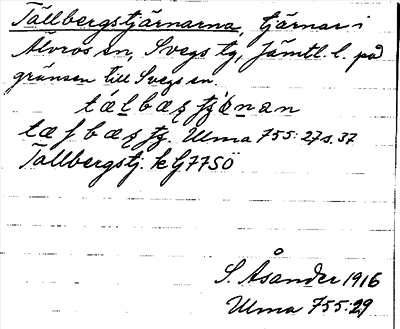 Tällbergstjärnarna, tjärnar i
Älvros sn, Svegs tg, Jämtl. l. på
gränsen till Svegs sn.
Ulma 755:27 s. 37
Tällbergstj. k G7750
S. Åsander 1916
Ulma 755:29